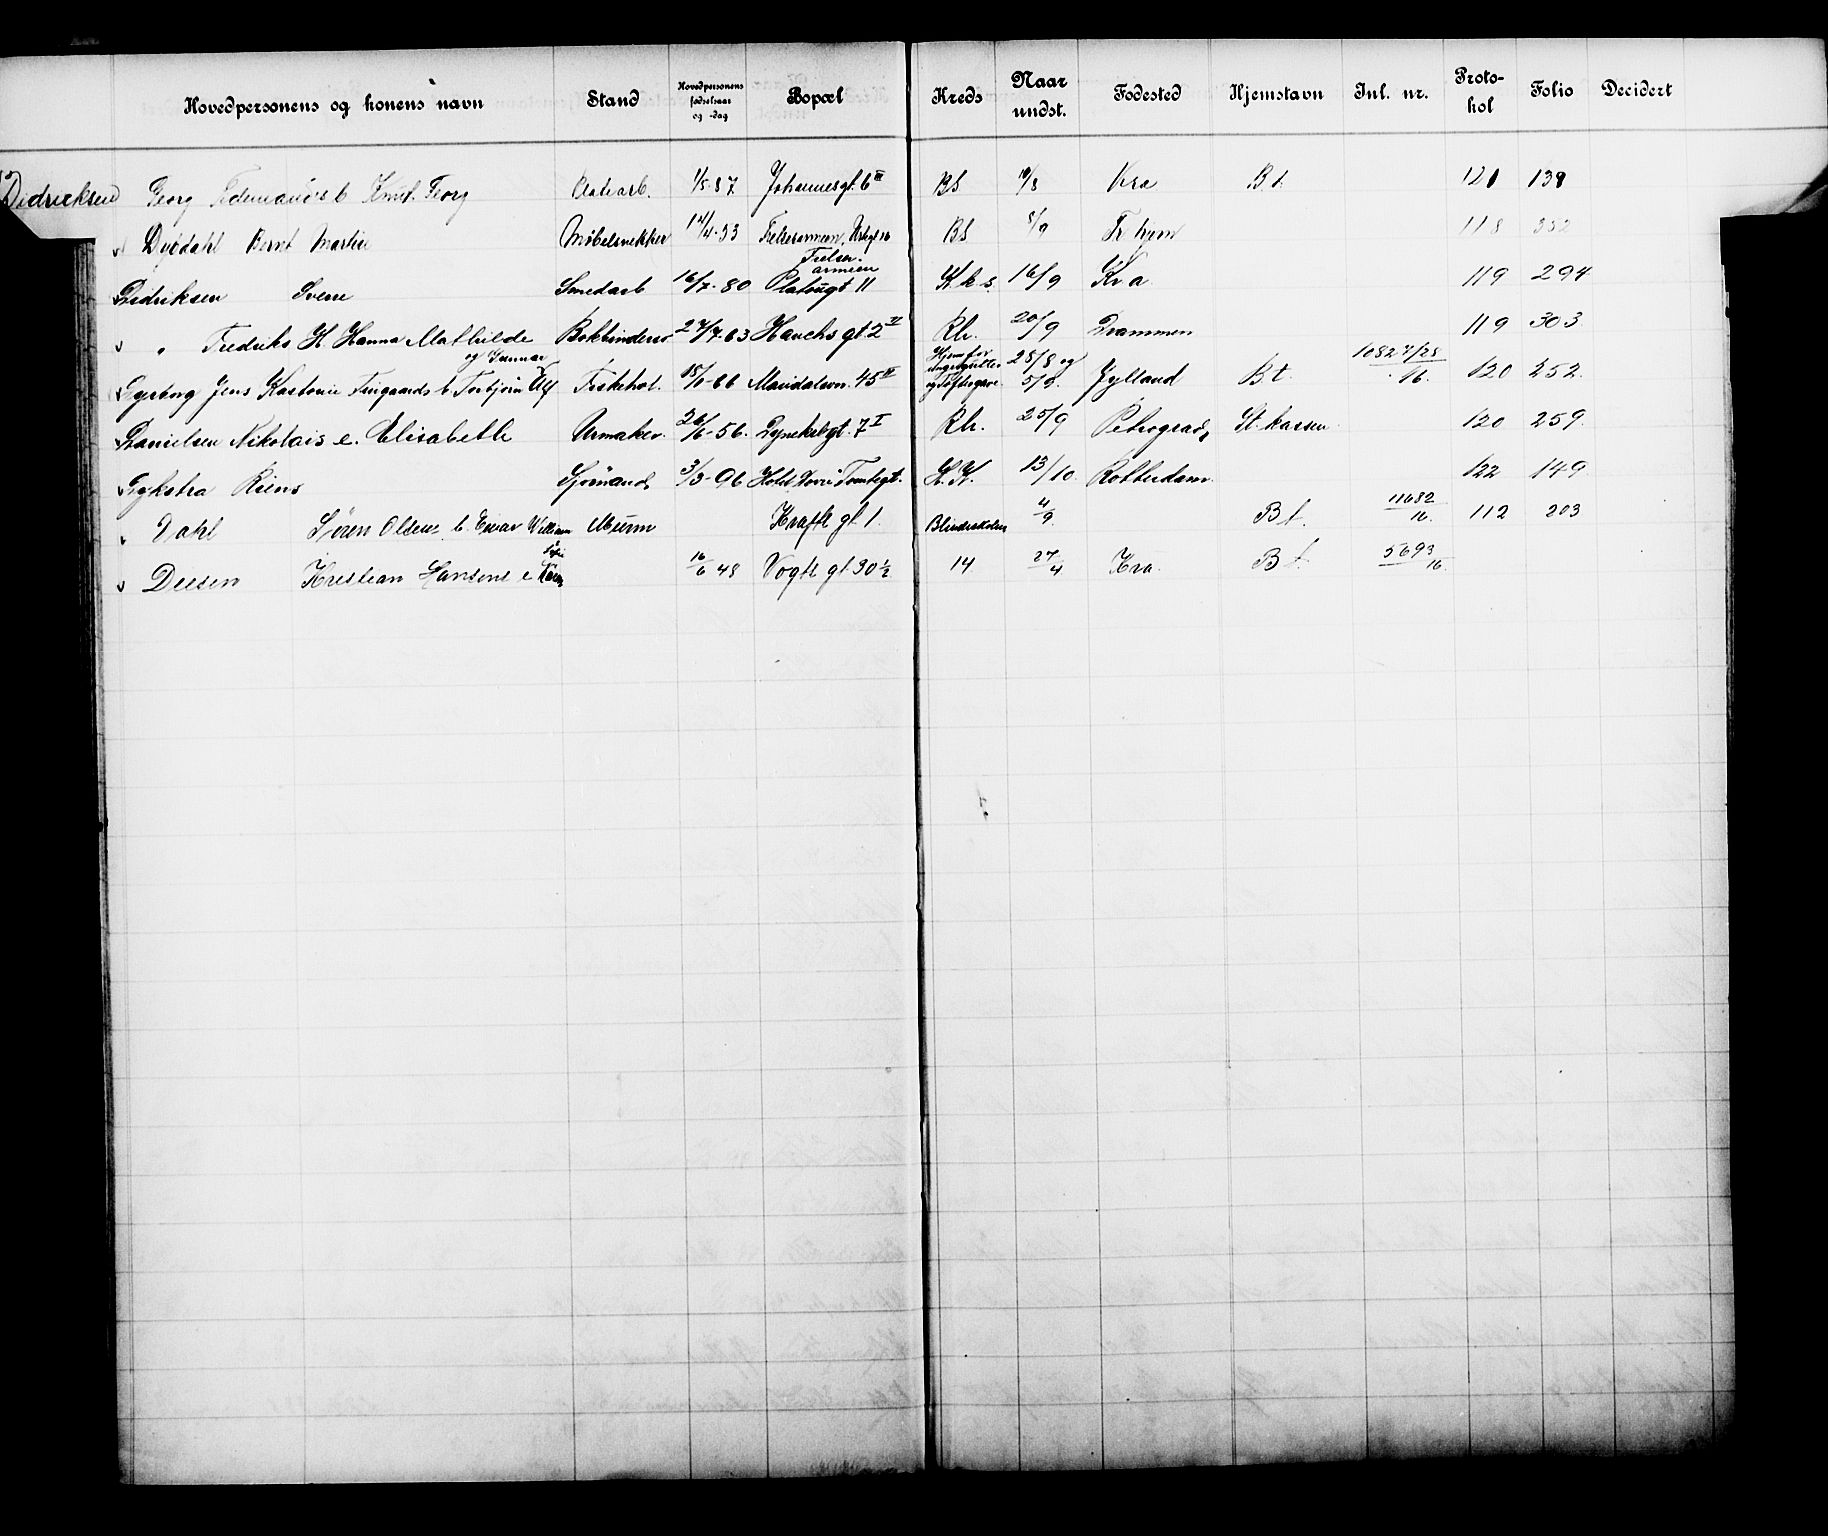 Hovedpersonens og konens navn Stand Hovedpersonens fødselsaar og -dag Bopæl Kreds Naar undst. Fødested Hjemstavn Inl. nr. Proto-kol Folio Decidert
Didricksen Georg b Knut Georg 1/5-87 Johannesgt. 6 III BS 10/8 Kra B.t. 121 139
Dybdahl Bernt Martin Møbelsnekker 14/4-53 Frelsesarmeen, BS 8/9 Tr.hjem 118 352
Didriksen Sverre Smedarb 16/7-80 Frelsesarmeen Platougt 11 K.k.s. 16/9 Kra 119 294
" Fredriks H. Hanna Mathilde Bokbinders 27/7-63 Hauchs gt 2 II Rh. 20/9 Drammen 119 303
og Gunnar
Dyrborg Jens b. Torbjørn Alf Fiskehol. -66 Maridalsvn. 45 28/8 og 5/8. Jylland B.t. 10827/28 16. 120 252.
Danielsen Nikolais e. Elisabeth Urmaker 26/6-56. 7 I Rh. 25/9 Petrograd St. kassen 120 259.
Dykstra Riens Sjømand 3/3-96 Hotel Dovre Tomtegt. 13/10. Rotterdam 122 149
Dahl Søren Olsens b. Einar William Murm Krafts gt 1. Blindeskolen 4/9. B t. 11682/16. 112 203
Deesen Kristian Hansens e Karen 16/6 48 Vogts gt 30 ½ 14 27/4 Kra. B t. 5693/16.